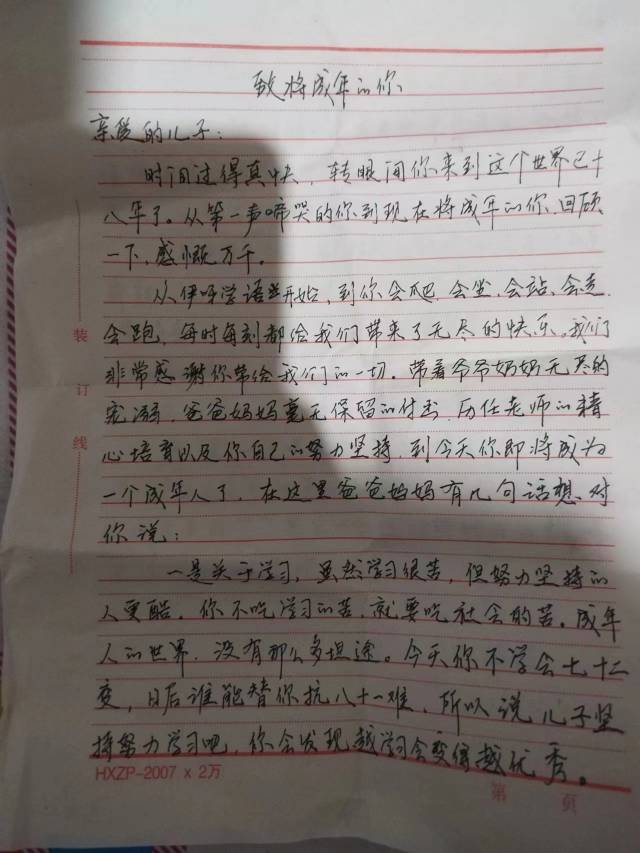 致将成年的你
亲爱的儿子：
时间过得真快，转眼间你来到这个世界已十
八年了。从第一声啼哭的你到现在将成年的你，回顾
一下，感慨万千。
从伊呀学语开始，到你会爬、会坐、会站、会走、
会跑，每时每刻都给我们带来了无尽的快乐，我们
非常感谢你带给我们的一切。带着爷爷奶奶无尽的
宠溺，爸爸妈妈毫无保留的付出，历任老师的精
心培育以及你自己的努力坚持，到今天你即将成为
一个成年人了，在这里爸爸妈妈有几句话想对
你说：
一是关于学习，虽然学习很苦，但努力坚持的
人更酷。你不吃学习的苦，就要吃社会的苦。成年
人的世界，没有那么多坦途。今天你不学会七十二
变，日后谁能替你抗八十一难，所以说儿子坚
持努力学习吧，你会发现越学习会变得越优秀。
装
订
线
HXZP-2007 x 2万
第 页